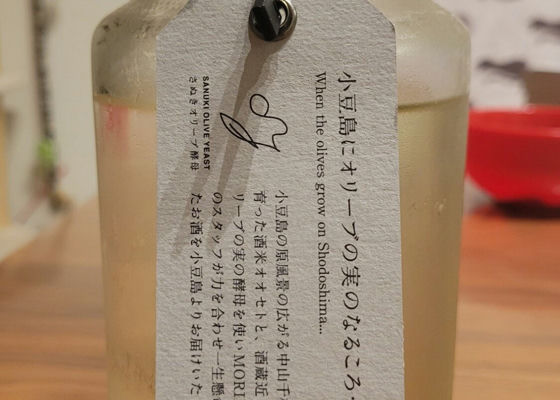 小豆島にオリーブの実のなるころ
When the olives grow on Shodoshima...
小豆島の原風景の広がる中山千
育った酒米オオセトと、酒蔵近
リーブの実の酵母を使いMORI
のスタッフが力を合わせ一生懸
たお酒を小豆島よりお届けいた
SANUKI OLIVE YEAST
さぬきオリーブ酵母